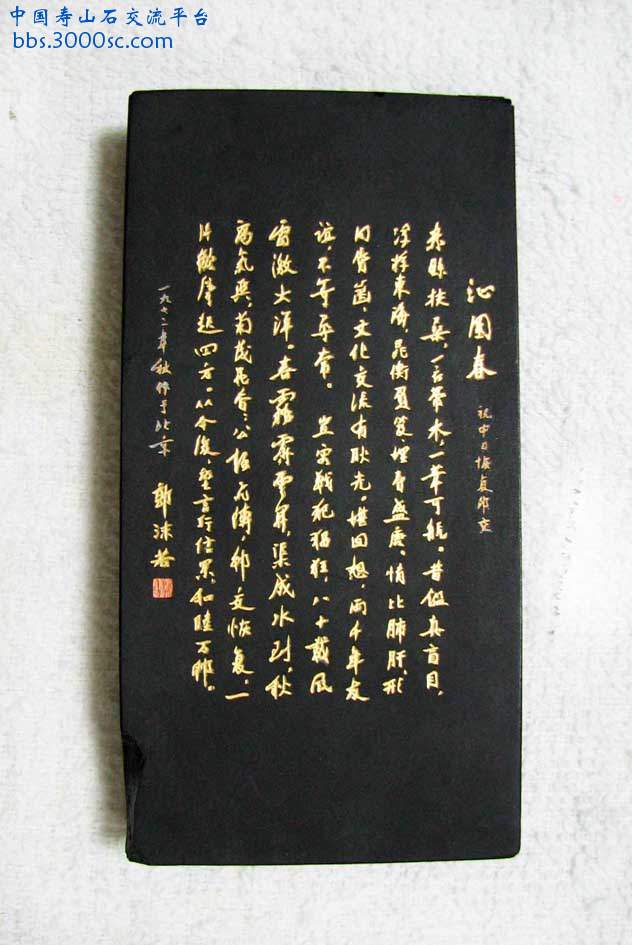 中国寿山石交流平台
bbs.3000sc.com
沁园春
祝中日恢复邦交
赤县扶桑，一衣带水，一苇可航。昔鉴真盲目，
浮桴东海，晁衡负笈，埋骨盛唐。情比肺肝，形
同唇齿，文化交流有耿光。堪回想，两千年友
谊，不等寻常。 岂容战犯猖狂，八十载风
雷激大洋。喜雾霁云开，渠成水到，秋
高气爽，菊茂花香，公报飞传，邦交恢复，一
片欢声起四方。从今后，望言行信果，和睦万邦。
一九七二年秋作于北京
郭沫若